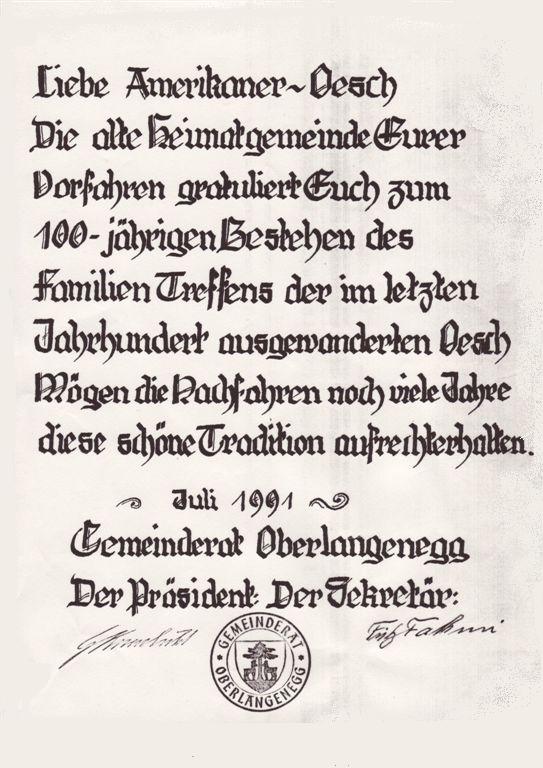 Liebe Amerikaner~Oesch
Die alte Heimatgemeinde Eurer
Vorfahren gratuliert Euch zum
100-jährigen Bestehen des
Familien Treffens der im letzten
Jahrhundert ausgewanderten Oesch
Mögen die Nachfahren noch viele Jahre
diese schöne Tradition aufrechterhalten.
Juli 1991
Gemeinderat Oberlangenegg
Der Präsident: Der Sekretär:
GEMEINDERAT
OBERLANGENEGG